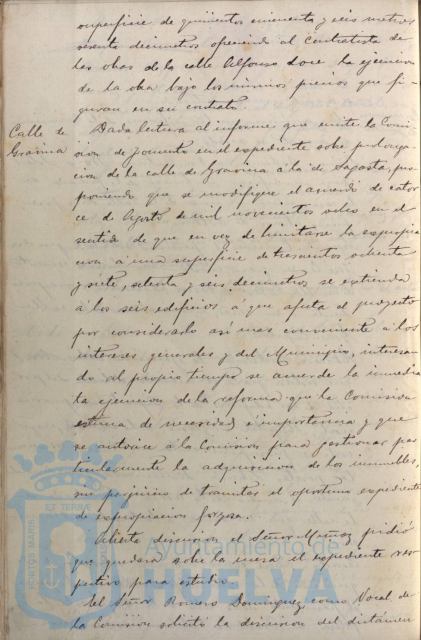 superficie de quinientos cincuenta y seis metros
sesenta decimetros ofreciendo al Contratista de
las obras de la calle Alfonso doce la ejecucion
de la obra bajo los mismos precios que fi-
guran en su contrato.
Calle de
Gravina
Dada lectura al informe que emite la Comi-
sion de fomento en el expediente sobre prolonga-
cion de la calle de Gravina á la de Sagasta, pro-
poniendo que se modifique el acuerdo de cator
ce de Agosto de mil novecientos ocho en el
sentido de que en vez de limitarse la expropia
cion á una superficie de trescientos ochenta
y siete, setenta y seis decimetros se extienda
á los seis edificios á que afecta el proyecto
por considerarlo asi mas conveniente á los
intereses generales y del Municipio, interesan
do al propio tiempo se acuerde la inmedia
ta ejecucion de la reforma que la Comision
estima de necesidad é importancia y que
se autorice á la Comision para gestionar par
ticularmente la adquisicion de los inmuebles,
sin perjuicio de tramitar el oportuno expediente
de expropiacion forzosa.
Abierta discusion el Señor Muñoz pidió
que quedara sobre la mesa el expediente res-
pectivo para estudio.
El Señor Romero Dominguez como Vocal de
la Comision solicitó la discusion del dictámen
PORTUS MARIS
ET TERRAE
Ayuntamiento
HUELVA